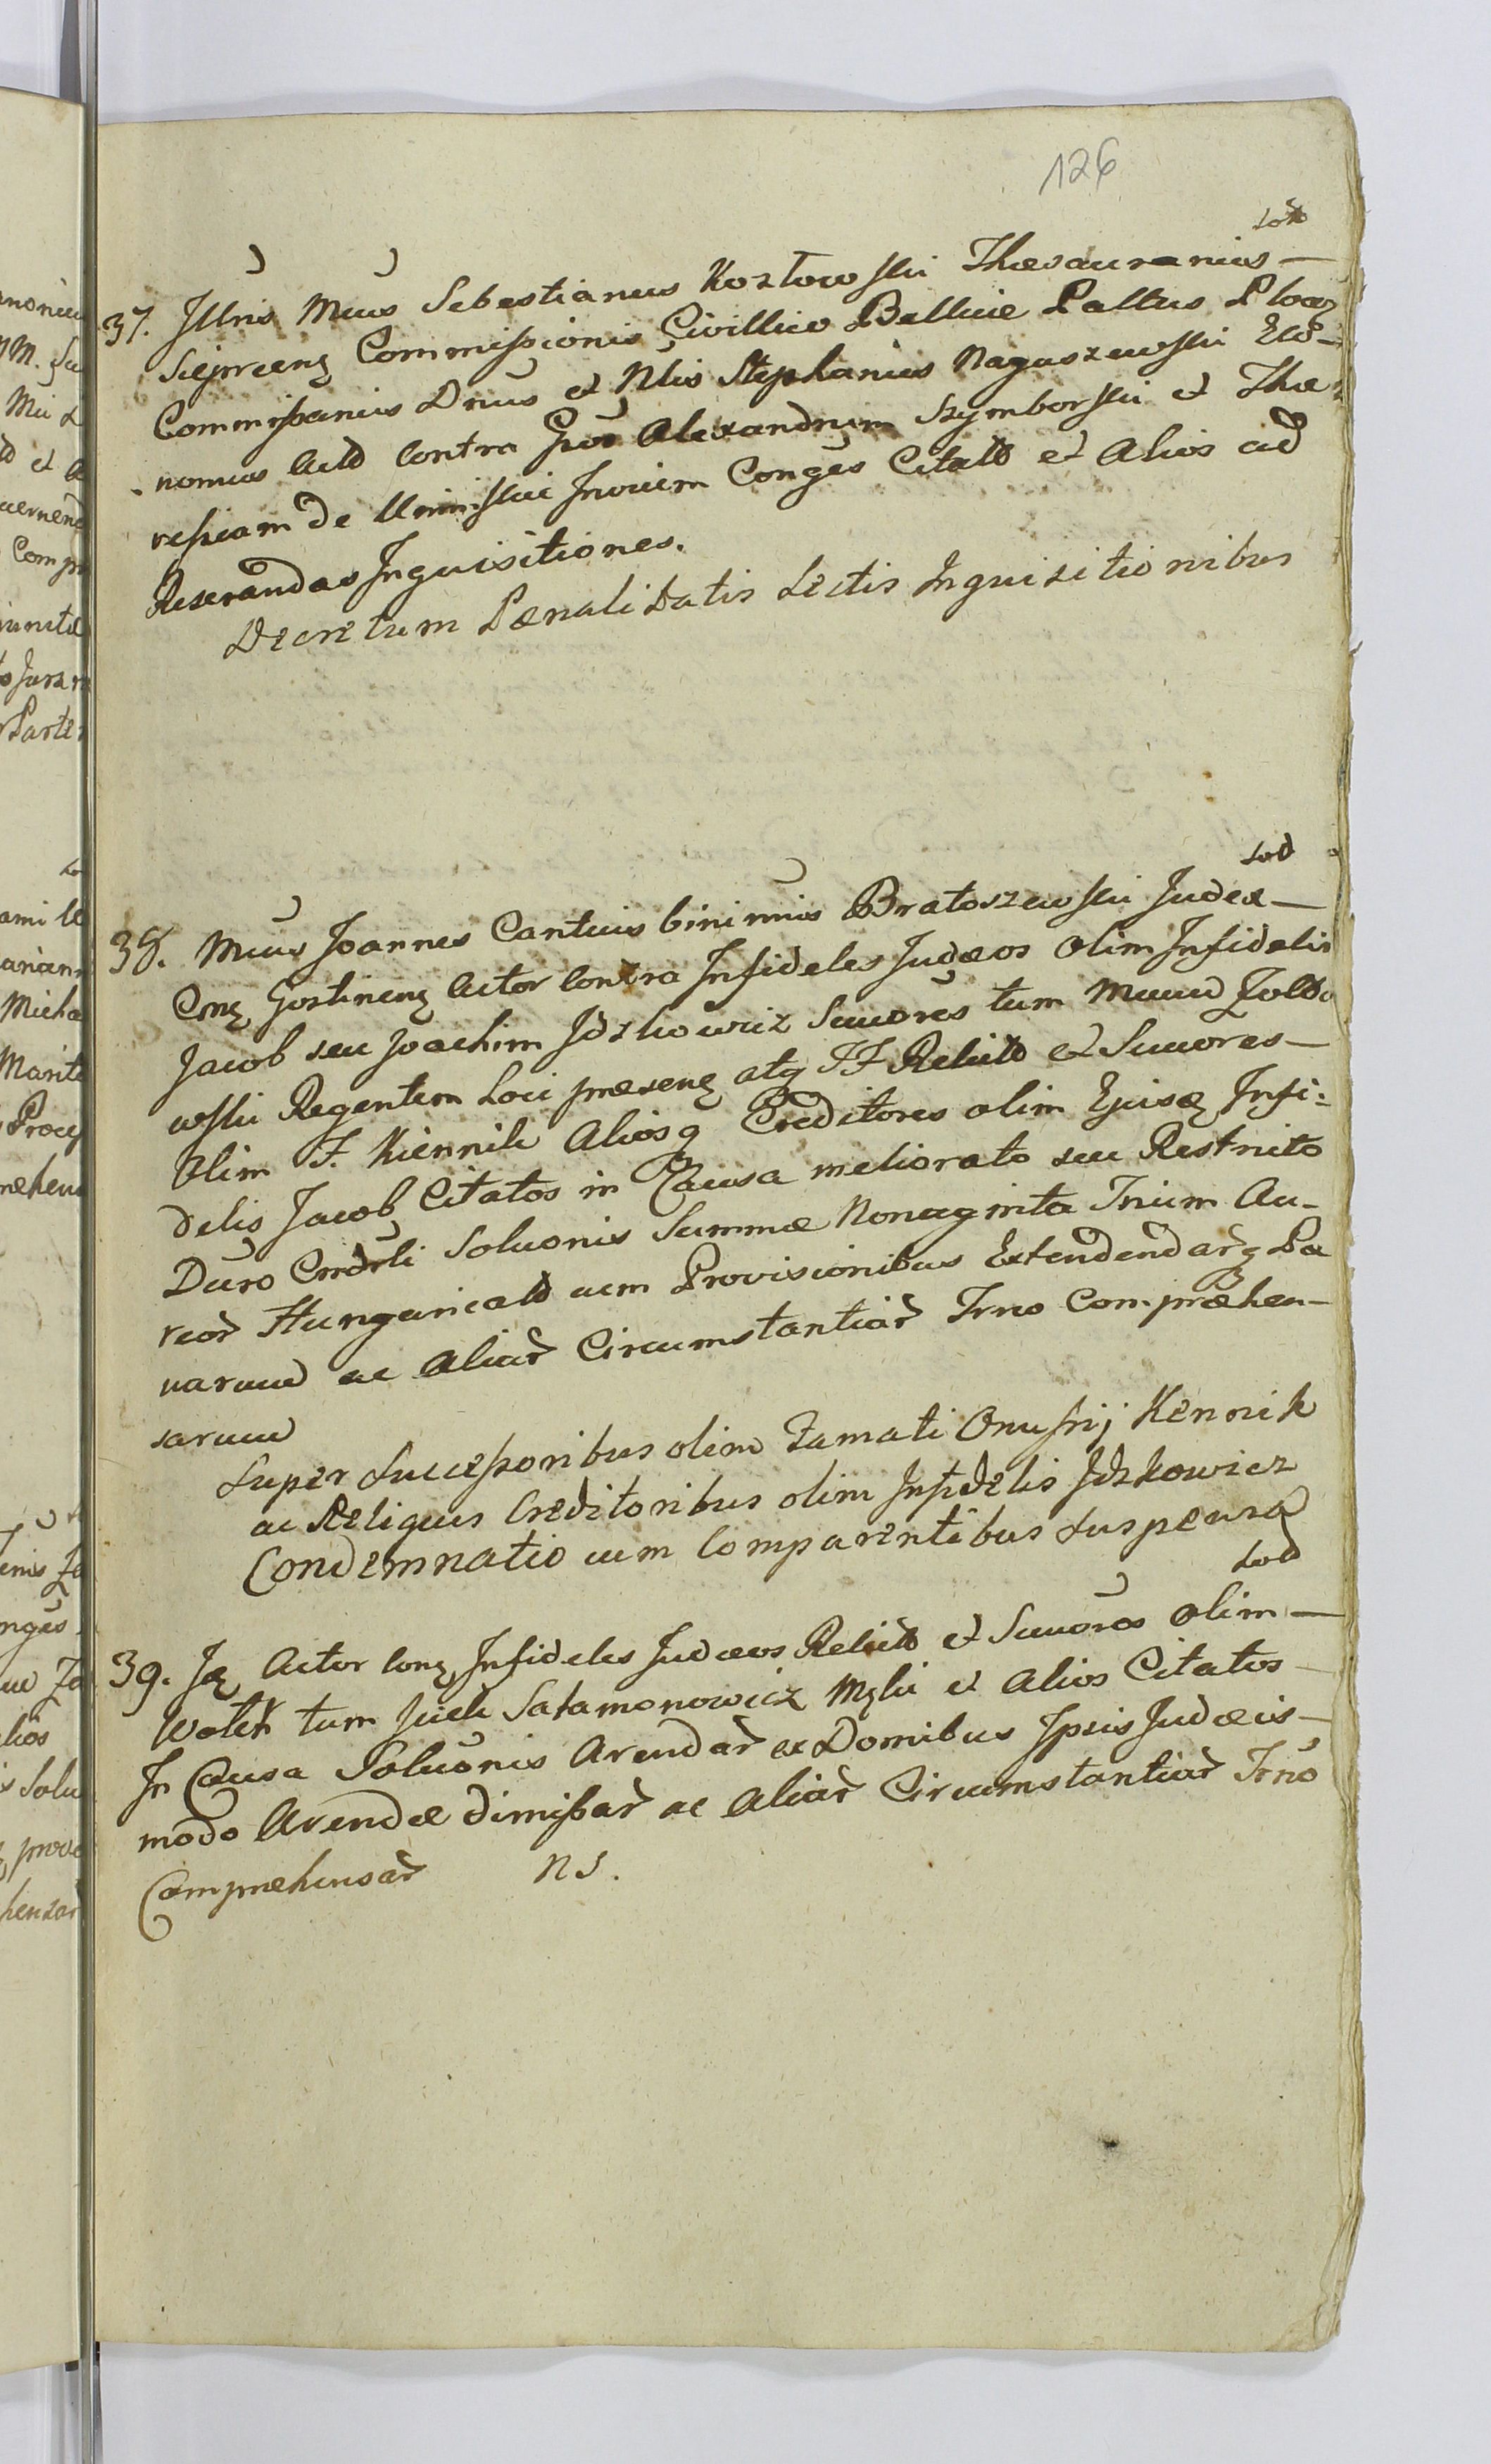 126
37. Illris Mcus Sebestianus Kozłowski Thesauranius —
Sieprceng Commissionis Civillico Bellicæ Pallus Plocen
Commissarius Dnus et Nlis Stephanus Naguszewski Eco-
nomus Actd Contra Gsos Alexandrum Szymborski et The-
resiam de Uninskie Inviem Conges Citatd et Alios ad
Reserandas Inquisitiones.
Decretum Pænalidatis Lectis Inquisitionibus
Lod
38. Mcus Joannes Cantius binimiis Bratoszewski Judex —
Cng Gostineng Actor Contra Infideles Judæos olim Infidelis
Jacob seu Joachim Idzkowicz Sucores tum Mcum Zoldo
wski Regentem Loci præseng atq FF Relictd et Sucores —
Olim F. Kiennik Aliosq Creditores olim Ejusdē Infi:
delis Jacob Citatos in Causa meliorato seu Restricto
Duro Crrdrli Soluonis Summæ Nonaginta Trium Au-
reor Hungaricald cum Provisionibus Extendendarq Pa
narum ac Aliar Circumstantiar Trno Compræhen-
sarum
Super Successoribus olim Famati Onufrij Kennik
ac Reliquis Creditoribus olim Infidelis Idzkowicz
Condemnatio cum Comparentibus suspensa
Lod
39. Jđ Actor Cong Infideles Judæos Relictd et Sucores Olim —
Wolek tum Jciek Salamonowicz Mgki et Alios Citatos
In Causa Soluonis Arendar ex Domibus Ipsis Judæis —
modo Arendæ dimissar ac Aliar Circumstantiar Trno
Compræhensar NS.